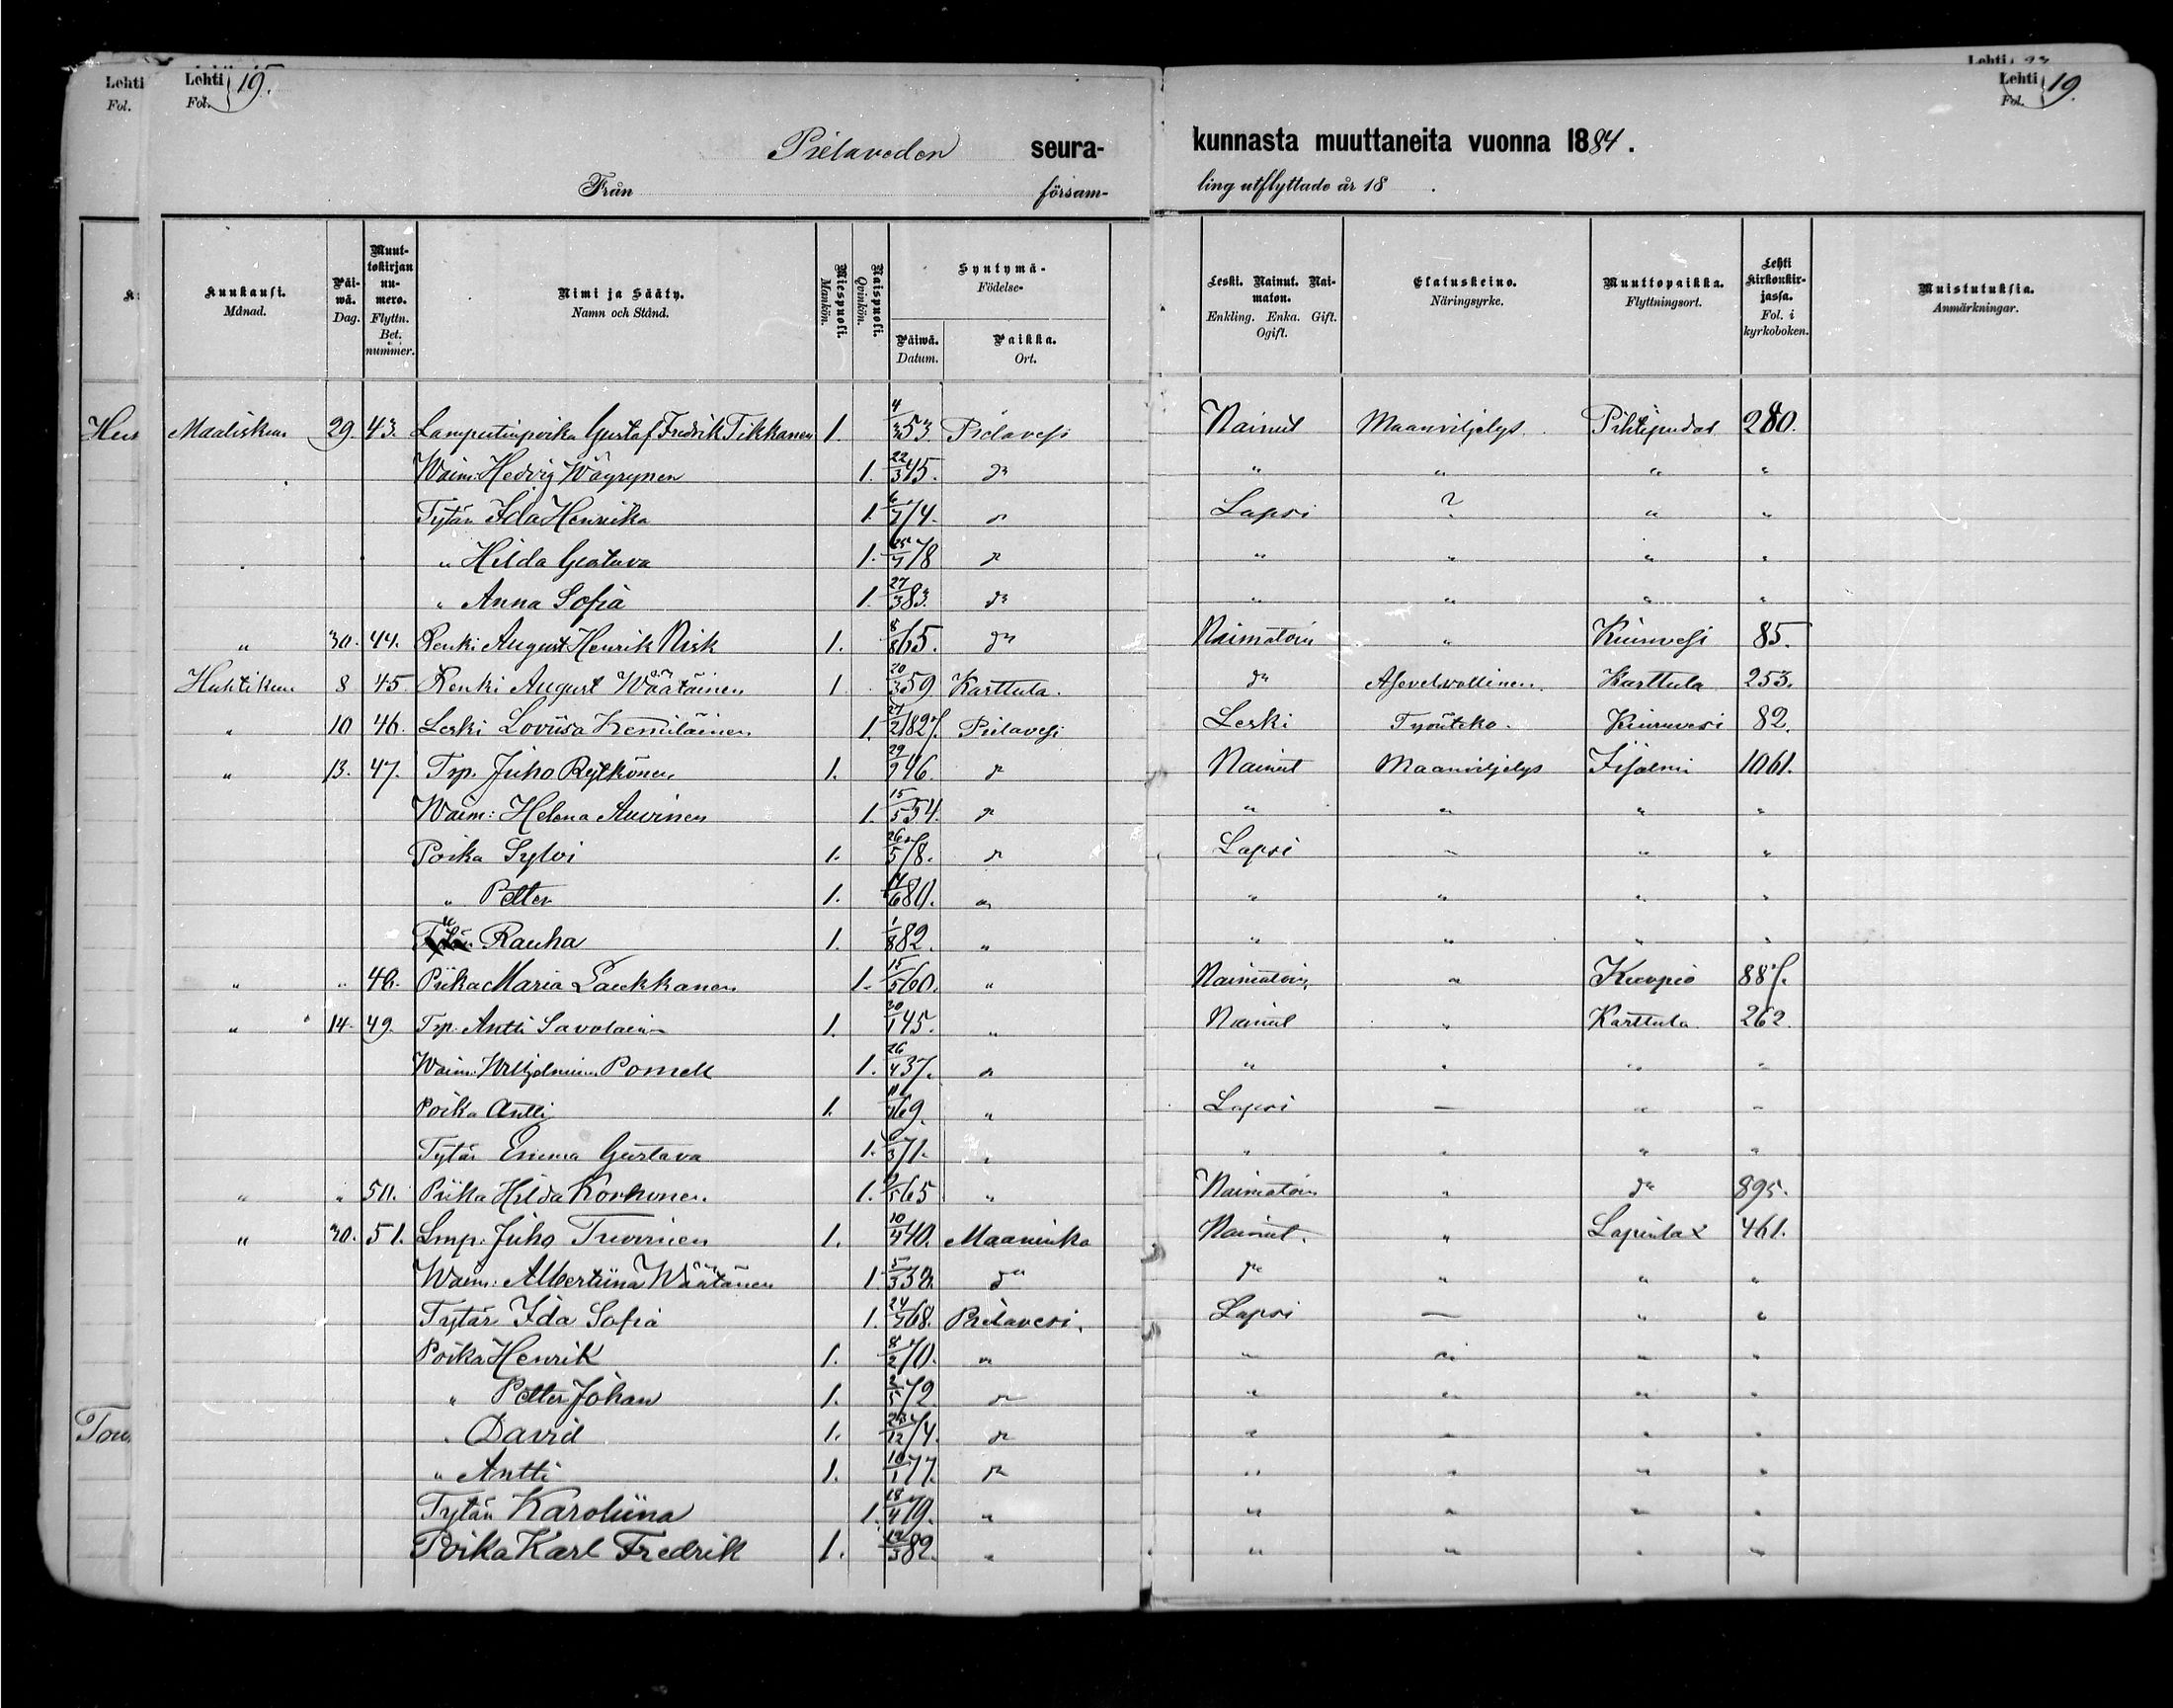 Lehti Fol. 19.
Lehti Fol. 19.
Pielaveden seurakunnasta muuttaneita vuonna 1884.
Från församling utflyttade år 18 .
Kuukausi. Månad.
Päiwä. Dag.
Muuttokirjan numero. Flyttn. Bet. nummer.
Nimi ja Sääty. Namn och Stånd.
Miespuoli. Mankön.
Naispuoli. Qvinkön.
Syntymä- Födelse-
Päiwä. Datum.
Paikka. Ort.
Leski. Nainut. Naimaton. Enkling. Enka. Gift. Ogift.
Elatuskeino. Näringsyrke.
Muuttopaikka. Flyttningsort.
Lehti kirkonkirjassa. Fol. i kyrkoboken.
Muistutuksia. Anmärkningar.
Maaliskuu 29. 43. Lampuotinpoika Gustaf Fredrik Tikkanen 1. 4/3 53 Pielavesi Nainut Maanviljelys Pihtipudas 280.
Waim: Hedvig Wäyrynen 1. 22/3 45. do " " " "
Tytär Ida Henrika 1. 74. do Lapsi ? " "
" Hilda Gustava 1. 78 do " " " "
" Anna Sofia 1. 27/3 83. do " " " "
" 30. 44. Renki August Henrik Risk 1. 8/8 65. do Naimatoin " Kiuruvesi 85.
Huhtikuu 8 45 Renki August Wäätäinen 1 20/3 59 Karttula. do Asevelvollinen. Karttula 253.
" 10 46. Leski Loviisa Kemiläinen 1. 27/2 1827. Pielavesi Leski Työnteko. Kiuruvesi 82.
" 13. 47. Trp. Juho Rytkönen 1. 29/9 46. do Nainut Maanviljelys Iisalmi 1061.
Waim: Helena Auvinen 1. 15/5 54. do " " " "
Poika Sylvi 1. 26/5 78. do Lapsi – " "
" Petter 1. 80. " " " " "
" Rauha 1. 1/8 82. " " " " "
" " 48. Piika Maria Laukkanen 1. 15/5 60. " Naimatoin " Kuopio 887.
" 14. 49. Trp. Antti Savolainen 1. 30/1 45. " Nainut " Karttula 262.
Waim: Wilhelmiina Pomell 1. 26/4 37. do " " " "
Poika Antti 1. 69. " Lapsi — " "
Tytär Emma Gustava 1. 71. " " " " "
" " 50. Piika Hilda Korhonen. 1. 65 " Naimatoin " do 895.
" 30. 51. Lmp. Juho Tuovinen 1. 40. Maaninka Nainut. " Lapinlax 461.
Waim: Albertiina Wäätänen 1. do do " " "
Tytär Ida Sofia 1. 68. Pielavesi. Lapsi — " "
Poika Henrik 1. 8/2 70. " " " " "
" Petter Johan 1. 72. do " " " "
" David 1. 74. do " " " "
" Antti 1. 77. do " " " "
Tytär Karoliina 1. 18/4 79. " " " " "
Poika Karl Fredrik 1. 82. " " " " "